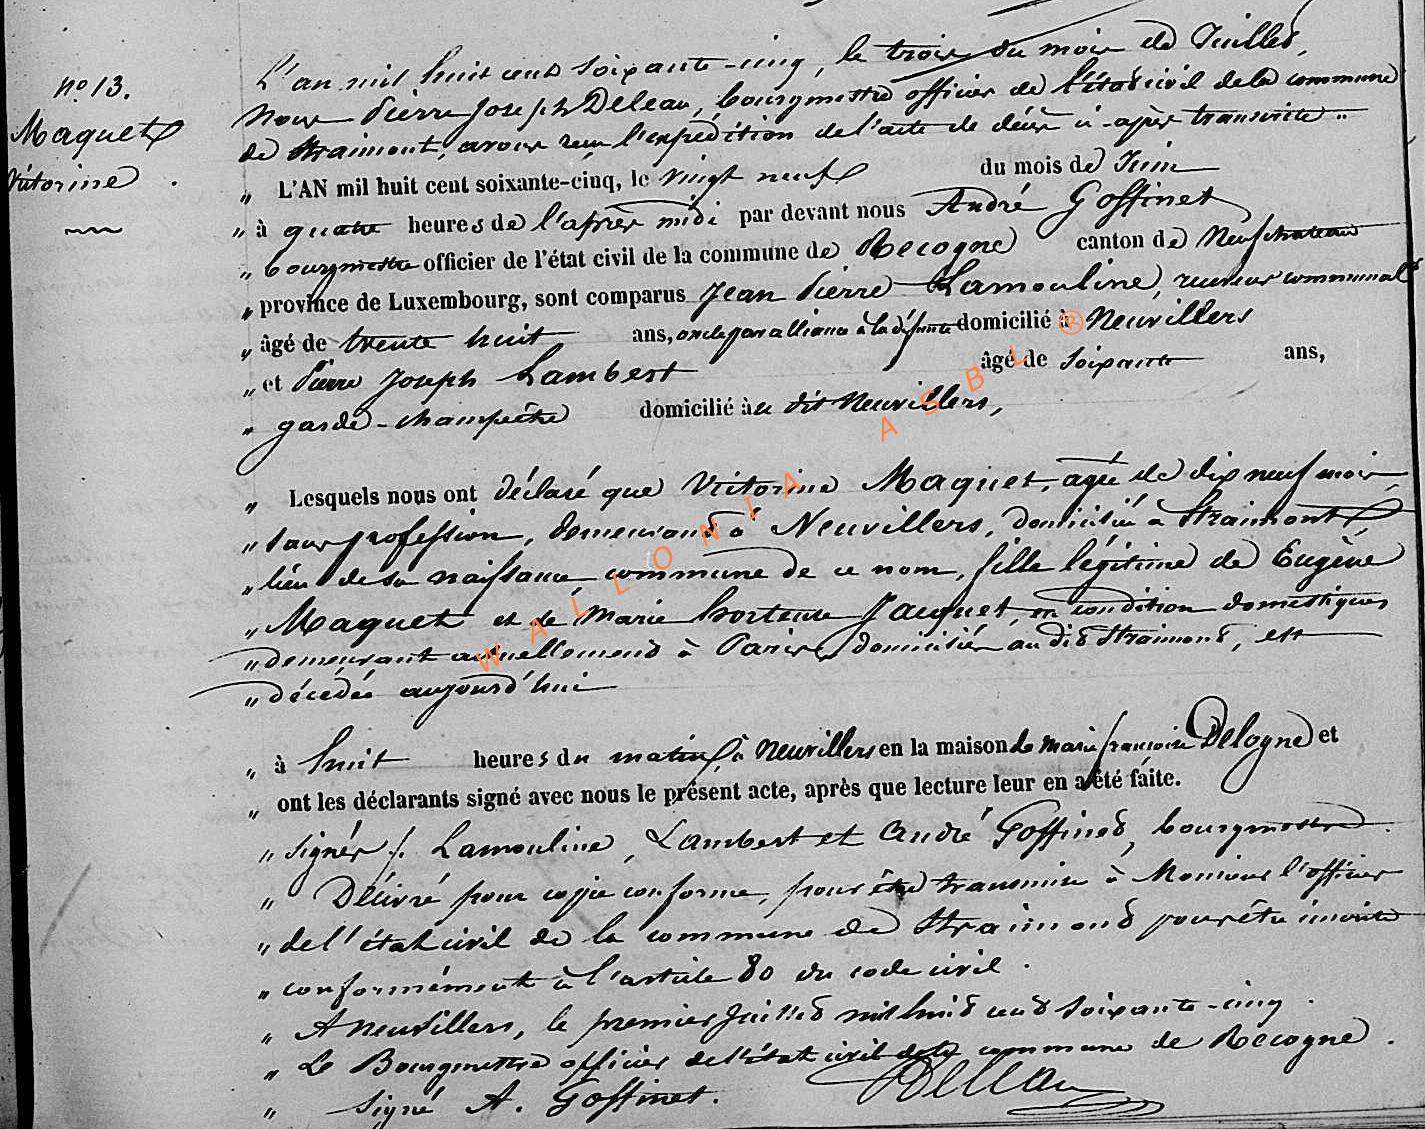 L'an mil huit cent soixante-cinq, le trois du mois de Juillet,
n° 13.
Nous Pierre Joseph Deleau, bourgmestre officier de l'état civil de la commune
Maquet
de Straimont, avons reçu l'expédition de l'acte de décès ci-après transcrite "
Victorine
" L'AN mil huit cent soixante-cinq, le vingt neuf du mois de Juin
" à quatre heures de l'après midi par devant nous André Goffinet
" bourgmestre officier de l'état civil de la commune de Recogne canton de Neufchateau
" province de Luxembourg, sont comparus Jean Pierre Lamouline, receveur communal
" âgé de trente huit ans, oncle par alliance à la défunte domicilié à Neuvillers
" et Pierre Joseph Lambert âgé de soixante ans,
" garde-champêtre domicilié au dit Neuvillers,
" Lesquels nous ont déclaré que Victorine Maquet, agée de dix neuf mois,
" sans profession, demeurant à Neuvillers, domiciliée à Straimont,
" lieu de sa naissance commune de ce nom, fille légitime de Eugène
" Maquet et de Marie hortense Jacquet, en condition domestiques
" demeurant actuellement à Paris, domiciliés au dit Straimont, est
" décédée aujourd'hui
" à huit heures du matin, à Neuvillers en la maison de Marie françoise Delogne et
" ont les déclarants signé avec nous le présent acte, après que lecture leur en a été faite.
" signés /. Lamouline, Lambert et André Goffinet, bourgmestre.
" Délivré pour copie conforme, pour être transmise à Monsieur l'officier
" de l'état civil de la commune de Straimont pour être inscrite
" conformément à l'article 80 du code civil.
" A Neuvillers, le premier Juillet mil huit cent soixante-cinq.
" Le Bourgmestre officier de l'état civil de la commune de Recogne.
" signé A. Goffinet. Deleau
WALLONIA ASBL ®